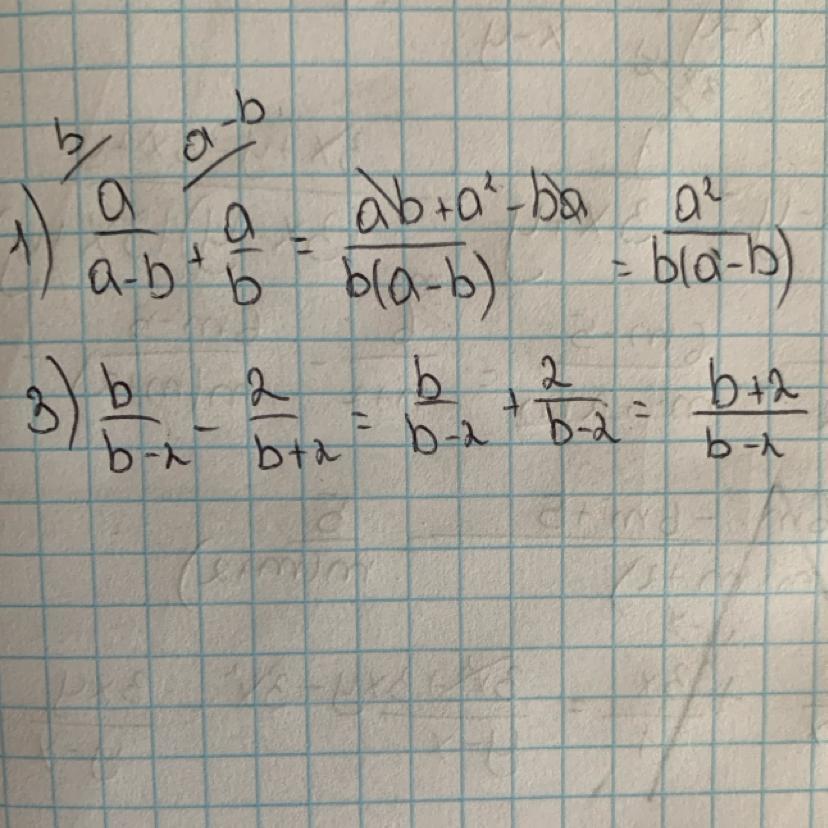 b/ a-b/
1) a/(a-b) + a/b = (ab+a²-ba)/(b(a-b)) = a²/(b(a-b))
3) b/(b-2) - 2/(b+2) = b/(b-2) + 2/(b-2) = (b+2)/(b-2)